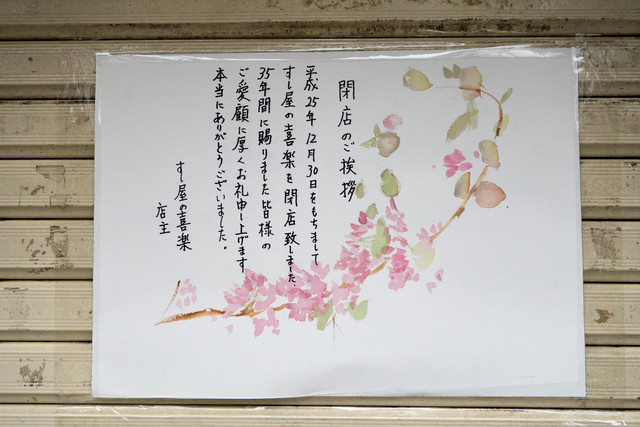 閉店のご挨拶
平成25年12月30日をもちまして
すし屋の喜楽を閉店致しました
35年間に賜りました皆様の
ご愛顧に厚くお礼申し上げます
本当にありがとうございました。
すし屋の喜楽
店主